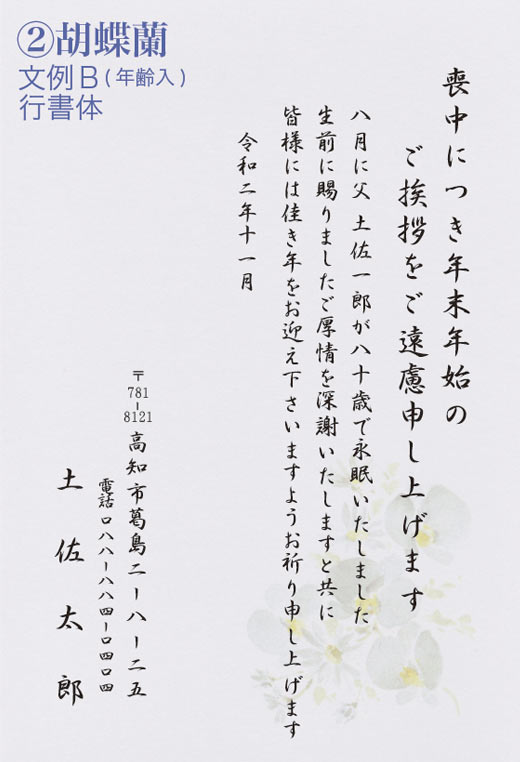 ②胡蝶蘭
文例B(年齢入)
行書体
喪中につき年末年始の
ご挨拶をご遠慮申し上げます
八月に父 土佐一郎が八十歳で永眠いたしました
生前に賜りましたご厚情を深謝いたしますと共に
皆様には佳き年をお迎え下さいますようお祈り申し上げます
令和二年十一月
〒781-8121 高知市葛島二ー八ー二五
電話〇八八ー八八四ー〇四〇四
土佐太郎